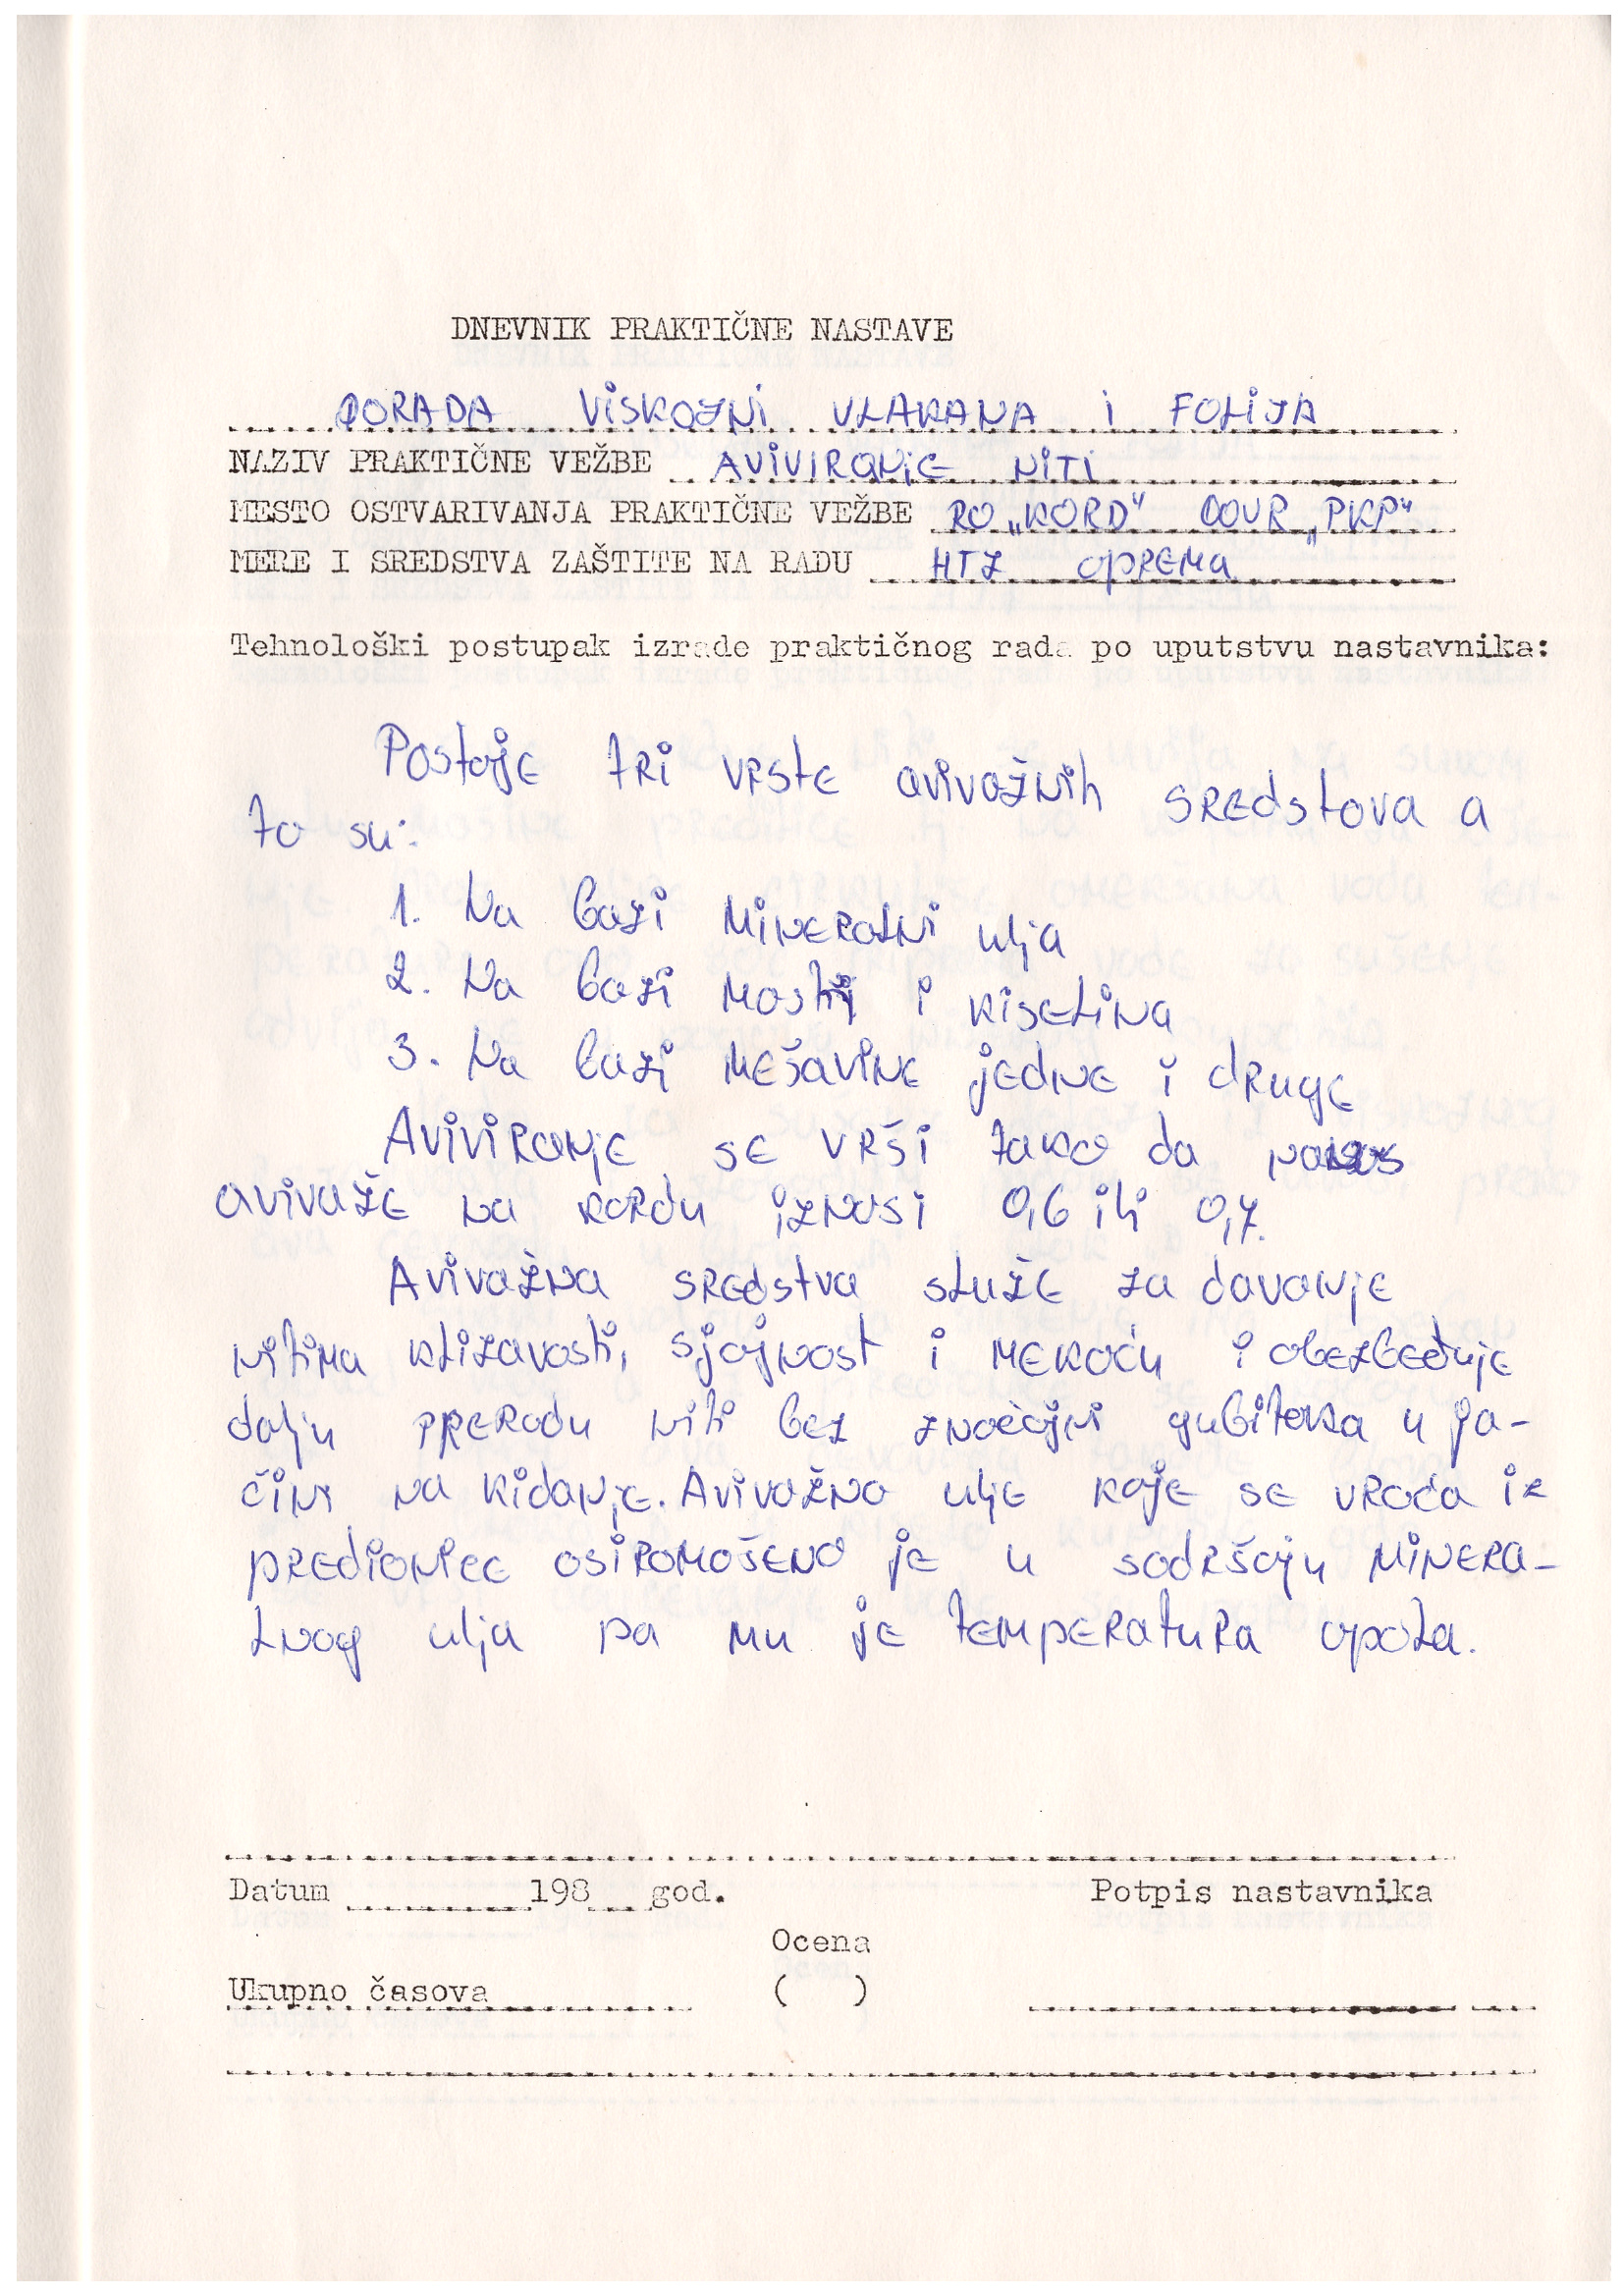 DNEVNIK PRAKTIČNE NASTAVE
DORADA VISKOZNI VLAKANA I FOLIJA
NAZIV PRAKTIČNE VEŽBE AVIVIRANJE NITI
MESTO OSTVARIVANJA PRAKTIČNE VEŽBE RO „KORD" OOUR „PKP"
MERE I SREDSTVA ZAŠTITE NA RADU HTZ OPREMA
Tehnološki postupak izrade praktičnog rada po uputstvu nastavnika:
Postoje tri vrste avivažnih sredstova a
to su:
1. Na bazi mineralni ulja
2. Na bazi masti i kiselina
3. Na bazi mešavine jedne i druge
Aviviranje se vrši tako da nanos
avivaže na kordu iznosi 0,6 ili 0,7.
Avivažna sredstva služe za davanje
nitima klizavosti, sjajnost i mekoću i obezbeđuje
dalju preradu niti bez značajni gubitaka u ja-
čini na kidanje. Avivažno ulje koje se vraća iz
predionice osiromašeno je u sadržaju minera-
lnog ulja pa mu je temperatura opala.
Datum 198 god. Potpis nastavnika
Ocena
Ukupno časova ( )